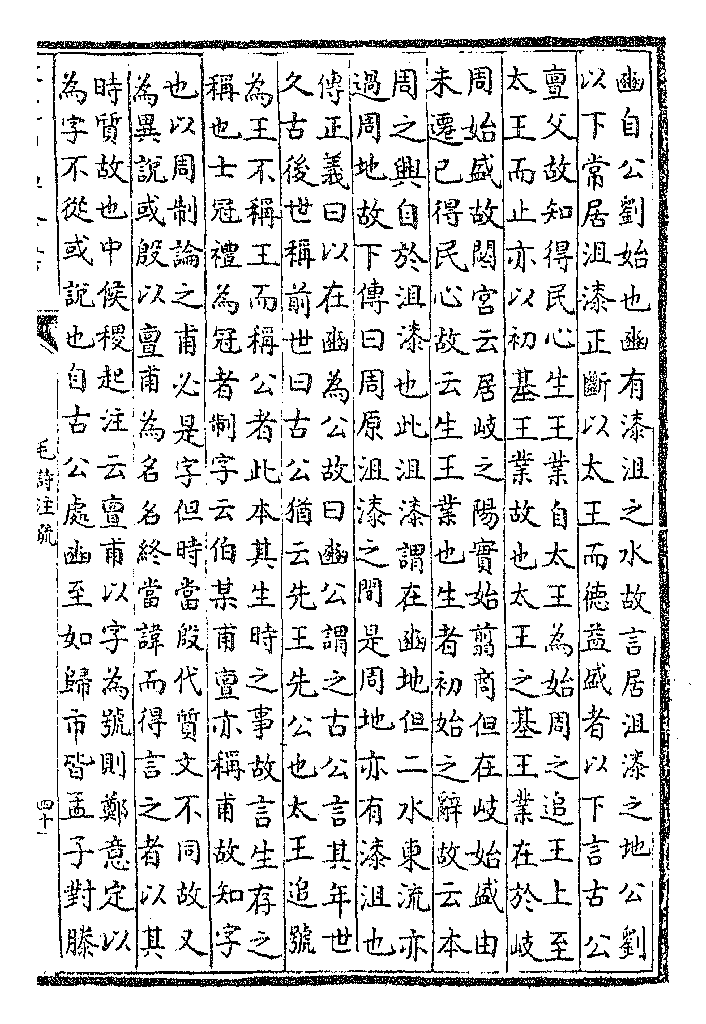 豳自公劉始也豳有漆沮之水故言居沮漆之地公劉
以下常居沮漆正斷以太王而德益盛者以下言古公
亶父故知得民心生王業自太王為始周之追王上至
太王而止亦以初基王業故也太王之基王業在於岐
周始盛故閟宮云居岐之陽實始翦商但在岐始盛由
未遷已得民心故云生王業也生者初始之辭故云本
周之興自於沮漆也此沮漆謂在豳地但二水東流亦
過周地故下傳曰周原沮漆之間是周地亦有漆沮也
傳正義曰以在豳為公故曰豳公謂之古公言其年世
久古後世稱前世曰古公猶云先王先公也太王追號
為王不稱王而稱公者此本其生時之事故言生存之
稱也士冠禮為冠者制字云伯某甫亶亦稱甫故知字
也以周制論之甫必是字但時當殷代質文不同故又
為異說或殷以亶甫為名名終當諱而得言之者以其
時質故也中候稷起注云亶甫以字為號則鄭意定以
為字不從或說也自古公處豳至如歸市皆孟子對滕
毛詩注疏
四十一